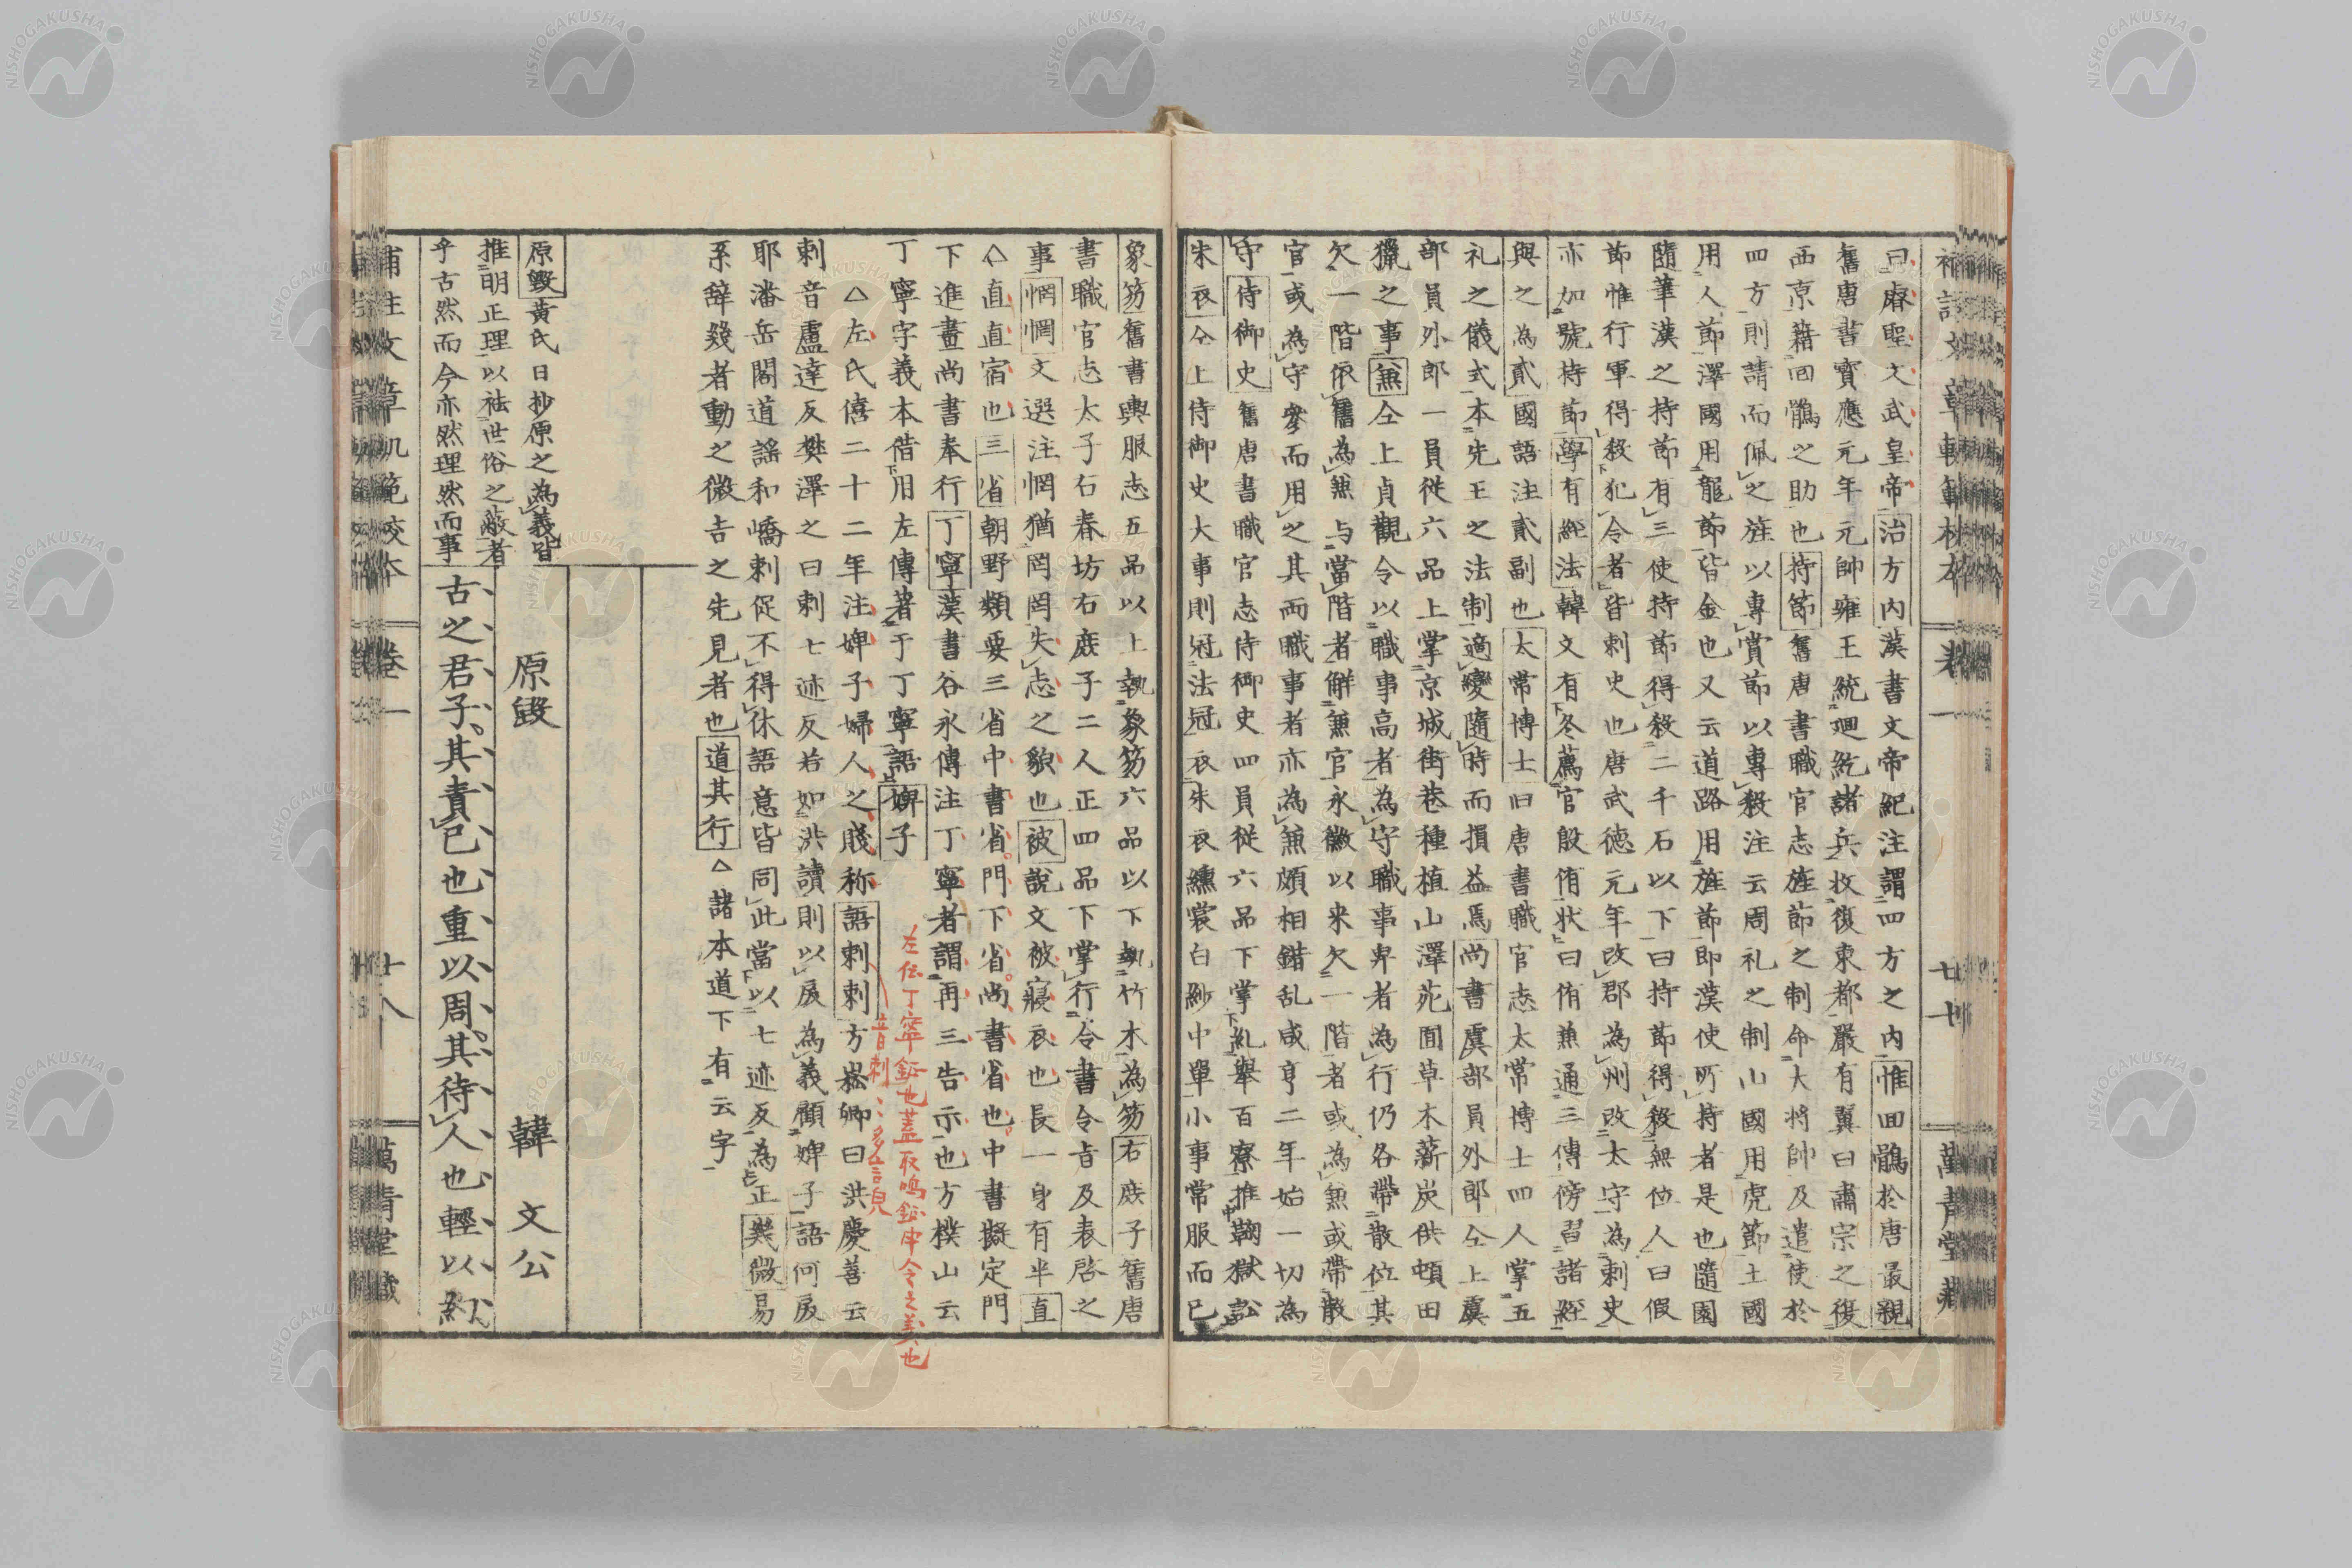 曰睿聖文武皇帝治方內漢書文帝紀注謂四方之內惟回鶻於唐最親
舊唐書寶應元年元帥雍王統廻紇諸兵收復東都嚴有翼曰肅宗之復
西京藉回鶻之助也持節舊唐書職官志旌節之制命大將帥及遣使於
四方則請而佩之旌以專賞節以專殺注云周礼之制山國用虎節土國
用人節澤國用龍節皆金也又云道路用旌節即漢使所持者是也隨園
隨筆漢之持節有三使持節得殺二千石以下曰持節得殺無位人曰假
節惟行軍得殺犯令者皆刺史也唐武德元年改郡為州改太守為刺史
亦加號持節學有經法韓文有冬薦官殷侑狀曰侑兼通三傳傍習諸經
與之為貳國語注貳副也太常博士旧唐書職官志太常博士四人掌五
礼之儀式本先王之法制適變隨時而損益焉尚書虞部員外郎仝上虞
部員外郎一員從六品上掌京城街巷種植山澤苑囿草木薪炭供頓田
獵之事兼仝上貞觀令以職事高者為守職事卑者為行仍各帶散位其
欠一階依舊為兼与當階者解兼官永徽以來欠一階者或為兼或帶散
官或為守參而用之其而職事者亦為兼頗相錯乱咸亨二年始一切為
守侍御史舊唐書職官志侍御史四員從六品下掌糺舉百寮推鞫獄訟
朱衣仝上侍御史大事則冠法冠衣朱衣纁裳白紗中單小事常服而已
象笏舊書輿服志五品以上執象笏六品以下執竹木為笏右庶子舊唐
書職官志太子右春坊右庶子二人正四品下掌行令書令旨及表啓之
事惘惘文選注惘猶罔罔失志之貌也被說文被寢衣也長一身有半直
△直直宿也三省朝野類要三省中書省門下省尚書省也中書擬定門
下進畫尚書奉行丁寧漢書谷永傳注丁寧者謂再三告示也方樸山云
丁寧字義本借用左傳著于丁寧語婢子
△左氏僖二十二年注婢子婦人之賤称語剌剌方崧卿曰洪慶善云
剌音盧達反樊澤之曰剌七迹反若如洪讀則以戾為義顧婢子語何戾
耶潘岳閣道謠和嶠剌促不得休語意皆同此當以七迹反為正幾微易
系辞幾者動之微吉之先見者也道其行△諸本道下有云字
左伝丁寧鉦也蓋取鳴鉦申令之義也
音剌〻多言皃
原毀黃氏日抄原之為義皆
推明正理以祛世俗之蔽者
乎古然而今亦然理然而事
原毀 韓文公
古之君子其責己也重以周其待人也輕以約
補注文章軌範校本 卷一 廿八 萬青堂藏